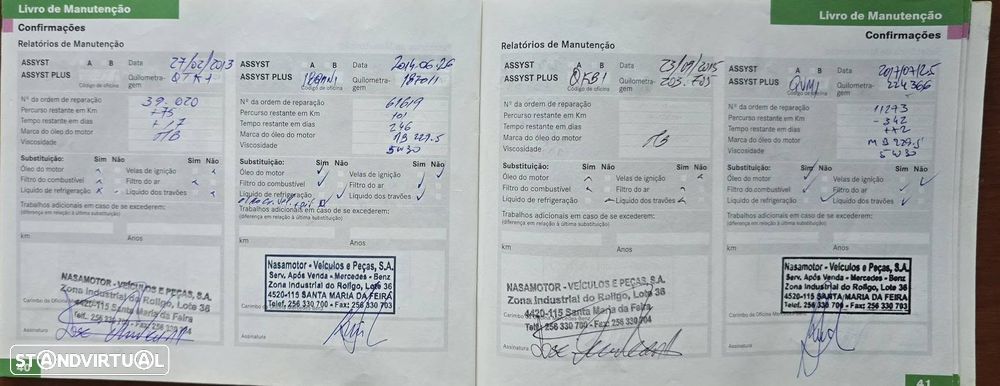 Livro de Manutenção
Confirmações
Relatórios de Manutenção
ASSYST A B Data 27/02/2013
ASSYST PLUS Quilometragem
Código de oficina
Nº da ordem de reparação 39.020
Percurso restante em Km +75
Tempo restante em dias
Marca do óleo do motor MB
Viscosidade
Substituição: Sim Não Sim Não
Óleo do motor Velas de ignição
Filtro do combustível Filtro do ar
Líquido de refrigeração Líquido dos travões
Trabalhos adicionais em caso de se excederem:
(diferença em relação à última substituição)
km Anos
NASAMOTOR - VEÍCULOS E PEÇAS, S.A.
Zona Industrial do Roligo, Lote 36
4420-115 Santa Maria da Feira
Telf. 256 330 700 - Fax: 256 330 703
Assinatura
40
ASSYST A B Data 2014.06.26
ASSYST PLUS Quilometragem 187011
Código de oficina
Nº da ordem de reparação 61619
Percurso restante em Km 101
Tempo restante em dias 246
Marca do óleo do motor MB 229.5
Viscosidade 5W30
Substituição: Sim Não Sim Não
Óleo do motor Velas de ignição
Filtro do combustível Filtro do ar
Líquido de refrigeração Líquido dos travões
Trabalhos adicionais em caso de se excederem:
(diferença em relação à última substituição)
km Anos
Nasamotor - Veículos e Peças, S.A.
Serv. Após Venda - Mercedes - Benz
Zona Industrial do Roligo, Lote 36
4520-115 SANTA MARIA DA FEIRA
Telef. 256 330 700 - Fax 256 330 703
Assinatura
Livro de Manutenção
Confirmações
Relatórios de Manutenção
ASSYST A B Data 23/09/2015
ASSYST PLUS Quilometragem 203.705
Código de oficina
Nº da ordem de reparação
Percurso restante em Km
Tempo restante em dias
Marca do óleo do motor MB
Viscosidade
Substituição: Sim Não Sim Não
Óleo do motor Velas de ignição
Filtro do combustível Filtro do ar
Líquido de refrigeração Líquido dos travões
Trabalhos adicionais em caso de se excederem:
(diferença em relação à última substituição)
km Anos
NASAMOTOR - VEÍCULOS E PEÇAS, S.A.
Zona Industrial do Roligo, Lote 36
4420-115 Santa Maria da Feira
Telf. 256 330 700 - Fax: 256 330 703
Assinatura
ASSYST A B Data 2017/07/25
ASSYST PLUS Quilometragem 224366
Código de oficina
Nº da ordem de reparação 11273
Percurso restante em Km -342
Tempo restante em dias
Marca do óleo do motor MB 229.5
Viscosidade 5W30
Substituição: Sim Não Sim Não
Óleo do motor Velas de ignição
Filtro do combustível Filtro do ar
Líquido de refrigeração Líquido dos travões
Trabalhos adicionais em caso de se excederem:
(diferença em relação à última substituição)
km Anos
Nasamotor - Veículos e Peças, S.A.
Serv. Após Venda - Mercedes - Benz
Zona Industrial do Roligo, Lote 36
4520-115 SANTA MARIA DA FEIRA
Telef. 256 330 700 - Fax 256 330 703
Assinatura
41
STANDVIRTUAL